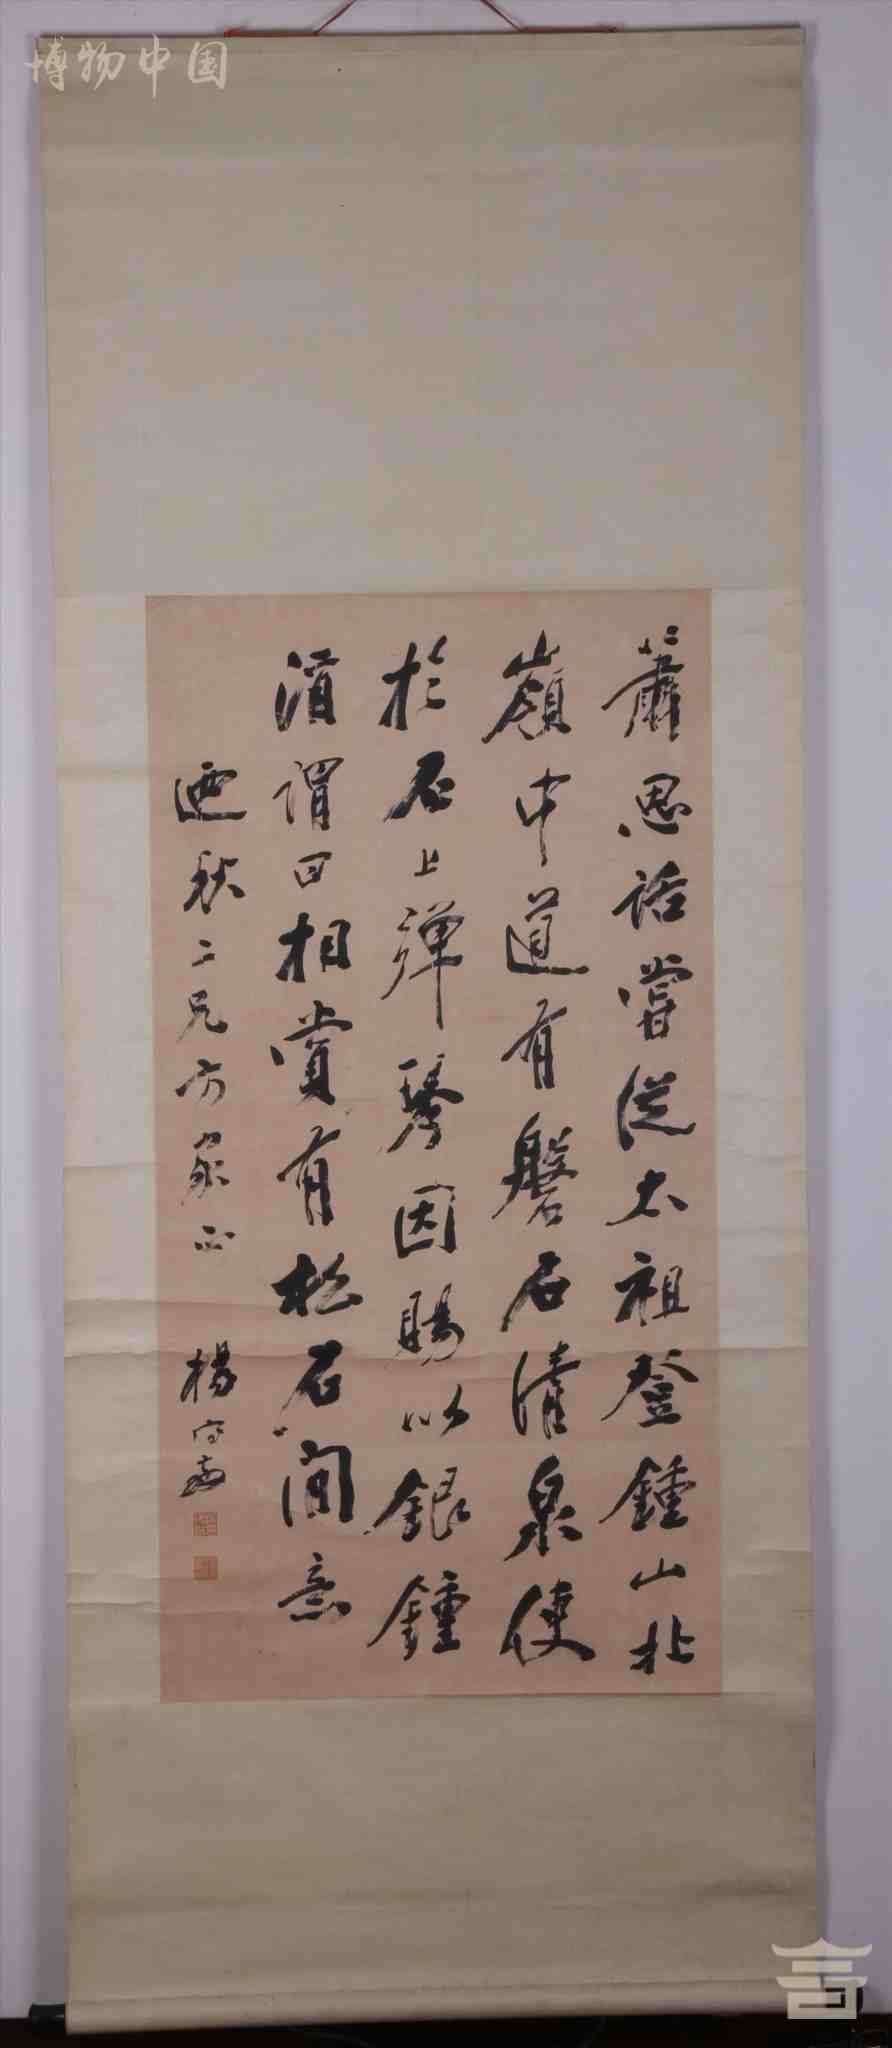 博物中国
蕭思話嘗從太祖登鍾山北
嶺中道有磐石清泉使
於石上彈琴因賜以銀鍾
酒謂曰相賞有松石間意
迺秋二兄方家正
楊守敬